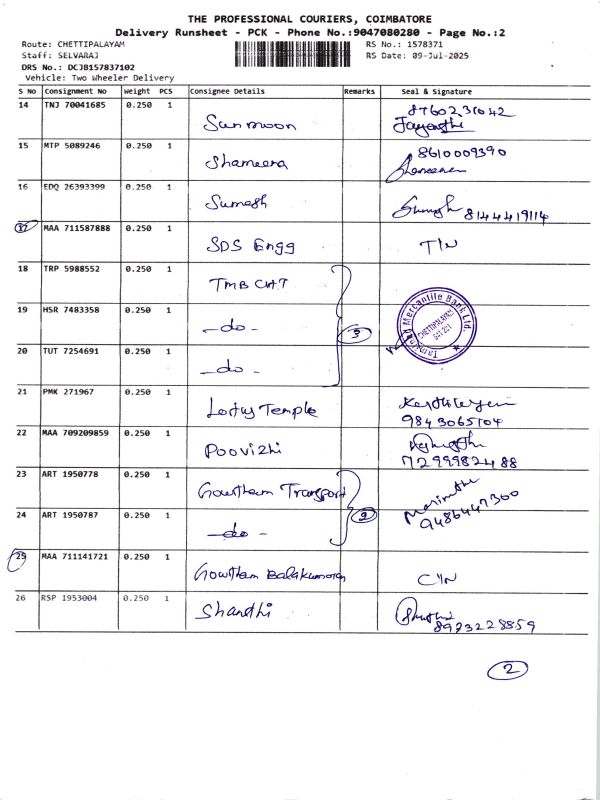 THE PROFESSIONAL COURIERS, COIMBATORE
Delivery Runsheet - PCK - Phone No.:9047080280 - Page No.:2
Route: CHETTIPALAYAM RS No.: 1578371
Staff: SELVARAJ RS Date: 09-Jul-2025
DRS No.: DCJB157837102
Vehicle: Two Wheeler Delivery
S No Consignment No Weight PCS Consignee Details Remarks Seal & Signature
14 TNJ 70041685 0.250 1 Sun moon 8760231042
Jayanthi
15 MTP 5089246 0.250 1 Shameera 8610009390
16 EDQ 26393399 0.250 1 Sumesh 8144419114
17 MAA 711587888 0.250 1 SDS Engg T/N
18 TRP 5988552 0.250 1 TMB CHT
19 HSR 7483358 0.250 1 -do- 3
Tamilnad Mercantile Bank Ltd.
CHETTIPALAYAM
641 201
20 TUT 7254691 0.250 1 -do-
21 PMK 271967 0.250 1 Lotus Temple
9843065104
22 MAA 709209859 0.250 1 Poovizhi
7299982488
23 ART 1950778 0.250 1 Gowtham Transport
9486447300
24 ART 1950787 0.250 1 -do- 2
25 MAA 711141721 0.250 1 Gowtham Balakumaran C/N
26 RSP 1953004 0.250 1 Shandhi
8973228859
2